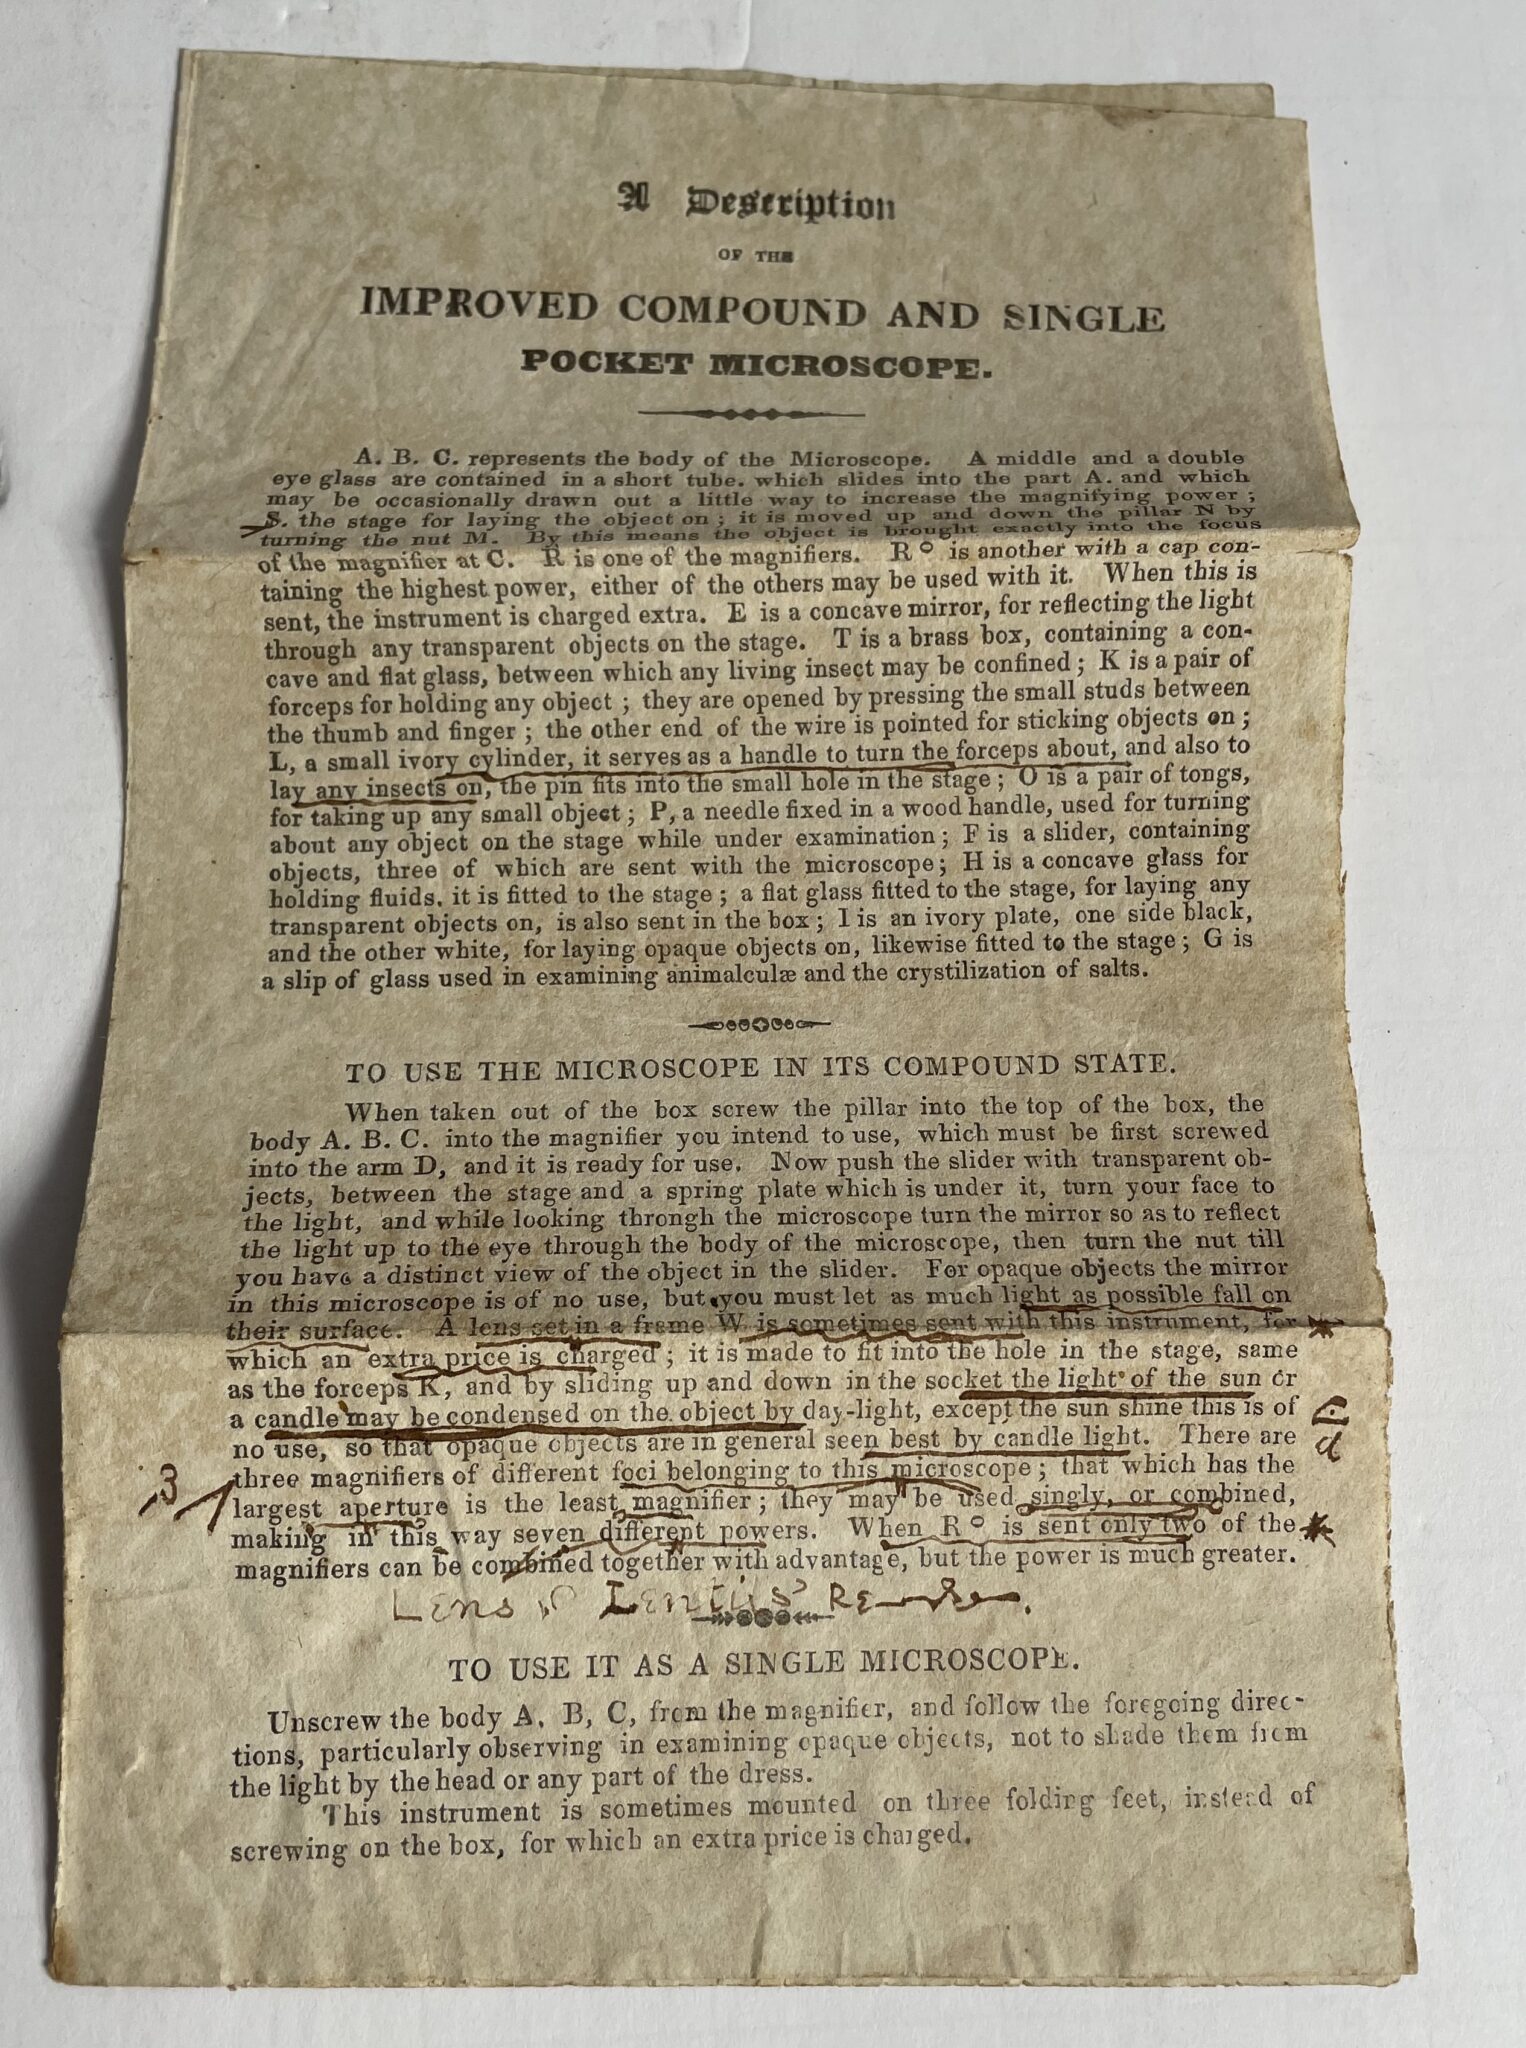 A Description
OF THE
IMPROVED COMPOUND AND SINGLE
POCKET MICROSCOPE.
A. B. C. represents the body of the Microscope. A middle and a double
eye glass are contained in a short tube. which slides into the part A. and which
may be occasionally drawn out a little way to increase the magnifying power ;
S. the stage for laying the object on ; it is moved up and down the pillar N by
turning the nut M. By this means the object is brought exactly into the focus
of the magnifier at C. R is one of the magnifiers. R o is another with a cap con-
taining the highest power, either of the others may be used with it. When this is
sent, the instrument is charged extra. E is a concave mirror, for reflecting the light
through any transparent objects on the stage. T is a brass box, containing a con-
cave and flat glass, between which any living insect may be confined ; K is a pair of
forceps for holding any object ; they are opened by pressing the small studs between
the thumb and finger ; the other end of the wire is pointed for sticking objects on ;
L, a small ivory cylinder, it serves as a handle to turn the forceps about, and also to
lay any insects on, the pin fits into the small hole in the stage ; O is a pair of tongs,
for taking up any small object ; P, a needle fixed in a wood handle, used for turning
about any object on the stage while under examination ; F is a slider, containing
objects, three of which are sent with the microscope; H is a concave glass for
holding fluids. it is fitted to the stage ; a flat glass fitted to the stage, for laying any
transparent objects on, is also sent in the box ; I is an ivory plate, one side black,
and the other white, for laying opaque objects on, likewise fitted to the stage ; G is
a slip of glass used in examining animalculæ and the crystilization of salts.
TO USE THE MICROSCOPE IN ITS COMPOUND STATE.
When taken out of the box screw the pillar into the top of the box, the
body A. B. C. into the magnifier you intend to use, which must be first screwed
into the arm D, and it is ready for use. Now push the slider with transparent ob-
jects, between the stage and a spring plate which is under it, turn your face to
the light, and while looking throngh the microscope turn the mirror so as to reflect
the light up to the eye through the body of the microscope, then turn the nut till
you have a distinct view of the object in the slider. For opaque objects the mirror
in this microscope is of no use, but you must let as much light as possible fall on
their surface. A lens set in a frame W is sometimes sent with this instrument, for
which an extra price is charged ; it is made to fit into the hole in the stage, same
as the forceps K, and by sliding up and down in the socket the light of the sun or
a candle may be condensed on the object by day-light, except the sun shine this is of
no use, so that opaque objects are in general seen best by candle light. There are
three magnifiers of different foci belonging to this microscope ; that which has the
3
largest aperture is the least magnifier ; they may be used singly, or combined,
making in this way seven different powers. When R o is sent only two of the
magnifiers can be combined together with advantage, but the power is much greater.
Lens
TO USE IT AS A SINGLE MICROSCOPE.
Unscrew the body A, B, C, from the magnifier, and follow the foregoing direc-
tions, particularly observing in examining opaque objects, not to shade them from
the light by the head or any part of the dress.
This instrument is sometimes mounted on three folding feet, instead of
screwing on the box, for which an extra price is charged.